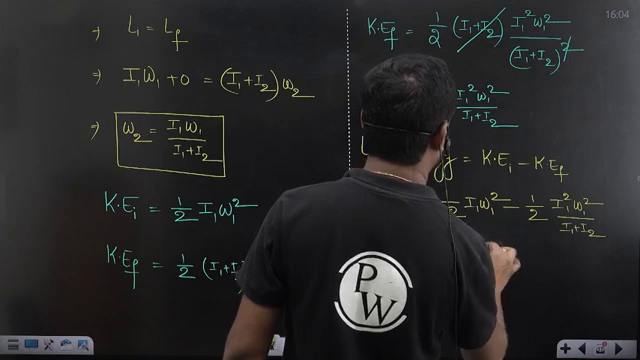 ⇒ L₁ = L_f
⇒ I₁W₁ + 0 = (I₁+I₂) ω₂
⇒ ω₂ = I₁W₁ / (I₁+I₂)
K.E_i = 1/2 I₁ω₁²
K.E_f = 1/2 (I₁+I
K.E_f = 1/2 (I₁+I₂) I₁²ω₁² / (I₁+I₂)²
I₁²ω₁² / (I₁+I₂)
= K.E_i − K.E_f
I₁ω₁² − 1/2 I₁²ω₁² / (I₁+I₂)
16:04
P
W